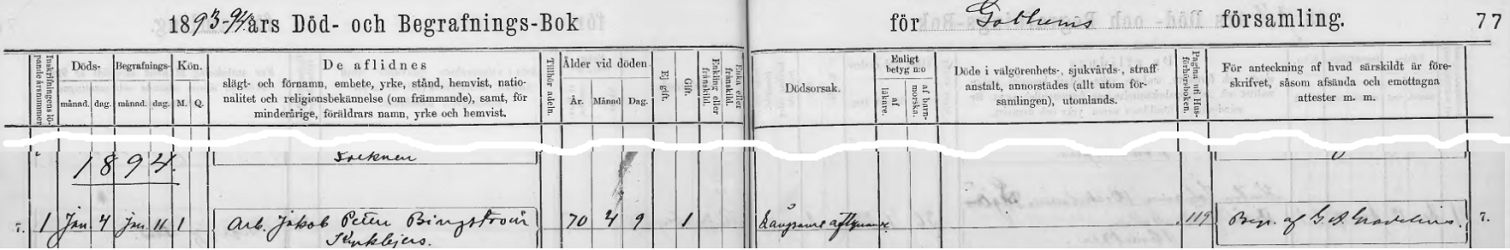 1893-94 års Död- och Begrafnings-Bok för Gothems församling. 77
Inskrifningens löpande årsnummer.
Döds-
månad. dag.
Begrafnings-
månad. dag.
Kön.
M. Q.
De aflidnes
slägt- och förnamn, embete, yrke, stånd, hemvist, natio-
nalitet och religionsbekännelse (om främmande), samt, för
minderårige, föräldrars namn, yrke och hemvist.
Tillhör rideln.
Ålder vid döden
År. Månad. Dag.
Ej gift.
Gift.
Enkling eller
frånskild.
Enka eller
frånskild.
Dödsorsak.
Enligt
betyg n:o
af
läkare.
af barn-
morska.
Döde i välgörenhets-, sjukvårds-, straff-
anstalt, annorstädes (allt utom för-
samlingen), utomlands.
Pagina uti Hus-
förhörsboken.
För anteckning af hvad särskildt är före-
skrifvet, såsom afsända och emottagna
attester m. m.
Socknen
1894.
7. 1 Jan 4 Jan. 11 1 Arb. Jakob Peter Bingström 70 4 9 1 Långsamt aftynande. 119 Begr. af 7.
Kyrklejers.